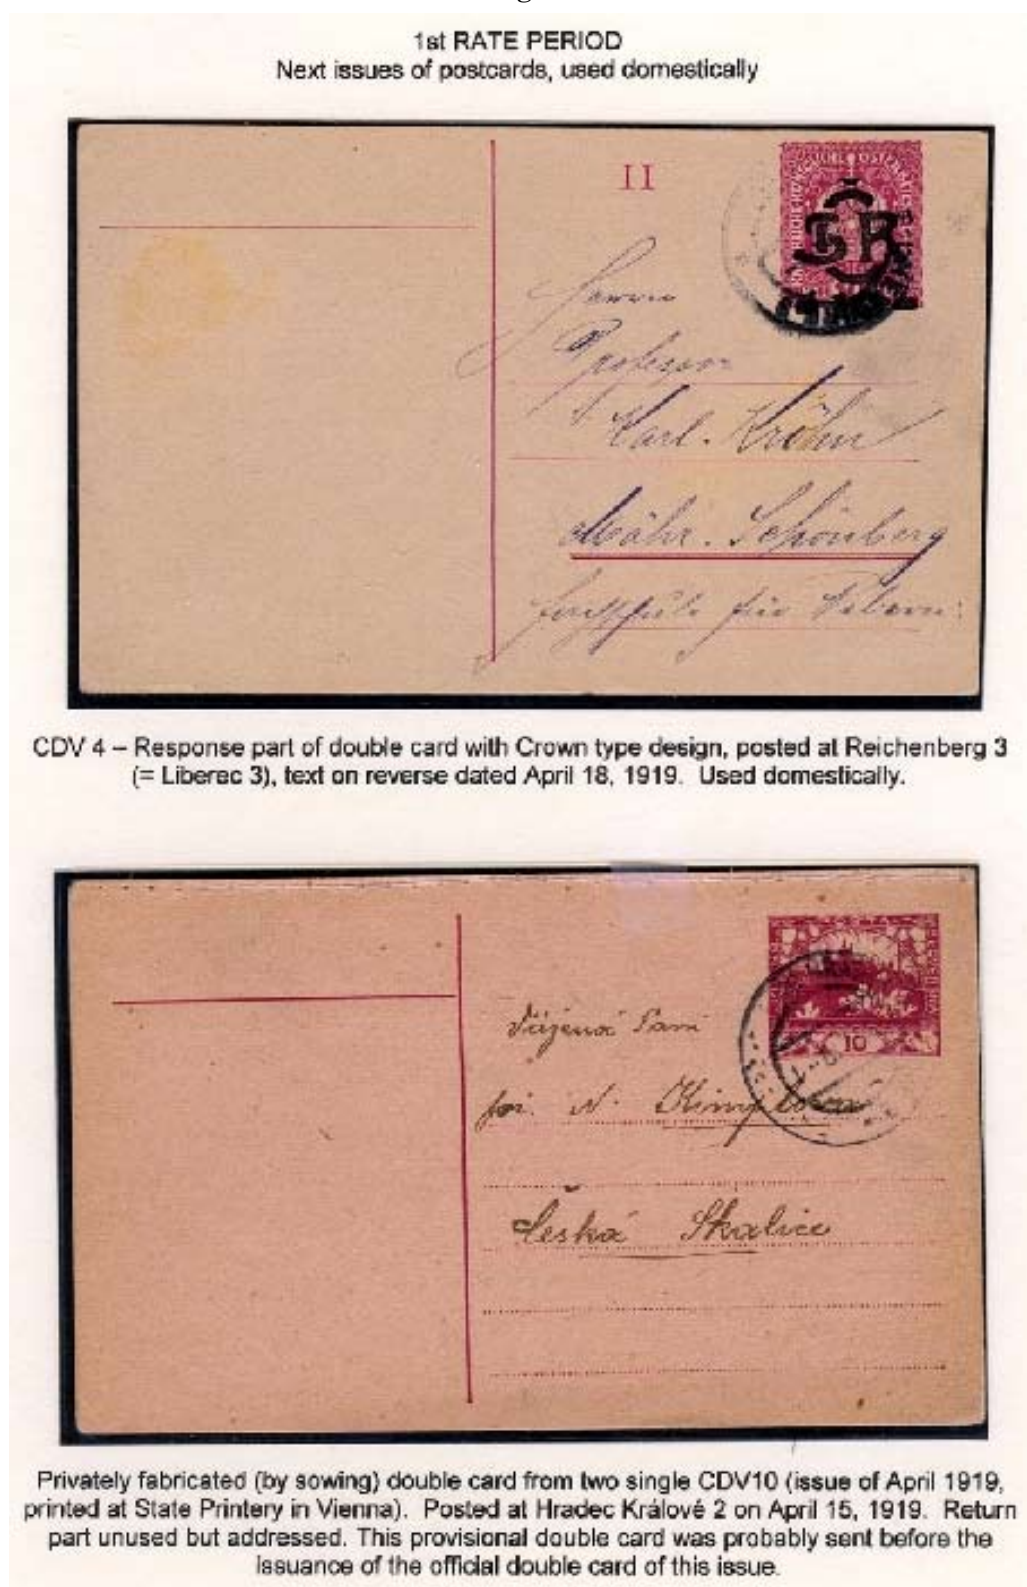 1st RATE PERIOD
Next issues of postcards, used domestically
II
ČSR
Herrn
Professor
Karl. Kröhn
Mähr. Schönberg
für
CDV 4 – Response part of double card with Crown type design, posted at Reichenberg 3
(= Liberec 3), text on reverse dated April 18, 1919. Used domestically.
10
Paní
Česká Skalice
Privately fabricated (by sowing) double card from two single CDV10 (issue of April 1919,
printed at State Printery in Vienna). Posted at Hradec Králové 2 on April 15, 1919. Return
part unused but addressed. This provisional double card was probably sent before the
issuance of the official double card of this issue.